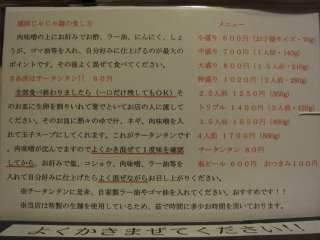 盛岡じゃじゃ麺の食し方
肉味噌の上にお好みでお酢、ラー油、にんにく、しょ
うが、ゴマ油等を入れ、自分好みに仕上げるのが最大の
ポイントです。その後よく混ぜて食べてください。
さあ次はチータンタン!! 80円
全部食べ終わりましたら(一口だけ残してもOK)そ
のお皿に生卵を割りいれて箸でといてお店の人に渡して
ください。そのお皿に熱々のゆで汁、ネギ、肉味噌を入
れて玉子スープにしてくれます。これがチータンタンです
肉味噌が沈んでますのでよくかき混ぜて1度味を確認
してから、お好みで塩、コショウ、肉味噌、ラー油等を
入れて自分好みに仕上げたらよく混ぜながらお召し上がりください。
※チータンタンに是非、自家製ラー油やゴマ油を入れてください。おすすめです!!
※当店は特製の生麺を使用しているため、茹で時間に多少お時間を頂いております。
メニュー
小盛り 600円(お子様サイズ・70g)
中盛り 700円(1人前・140g)
大盛り 850円
特盛り 1020円
2.5人前 1250円(350g)
トリプル 1450円(3人前・
3.5人前 1550円
4人前 1700円(560g)
チータンタン 80円
瓶ビール 600円 おつまみ100円
よくかきまぜてください!!